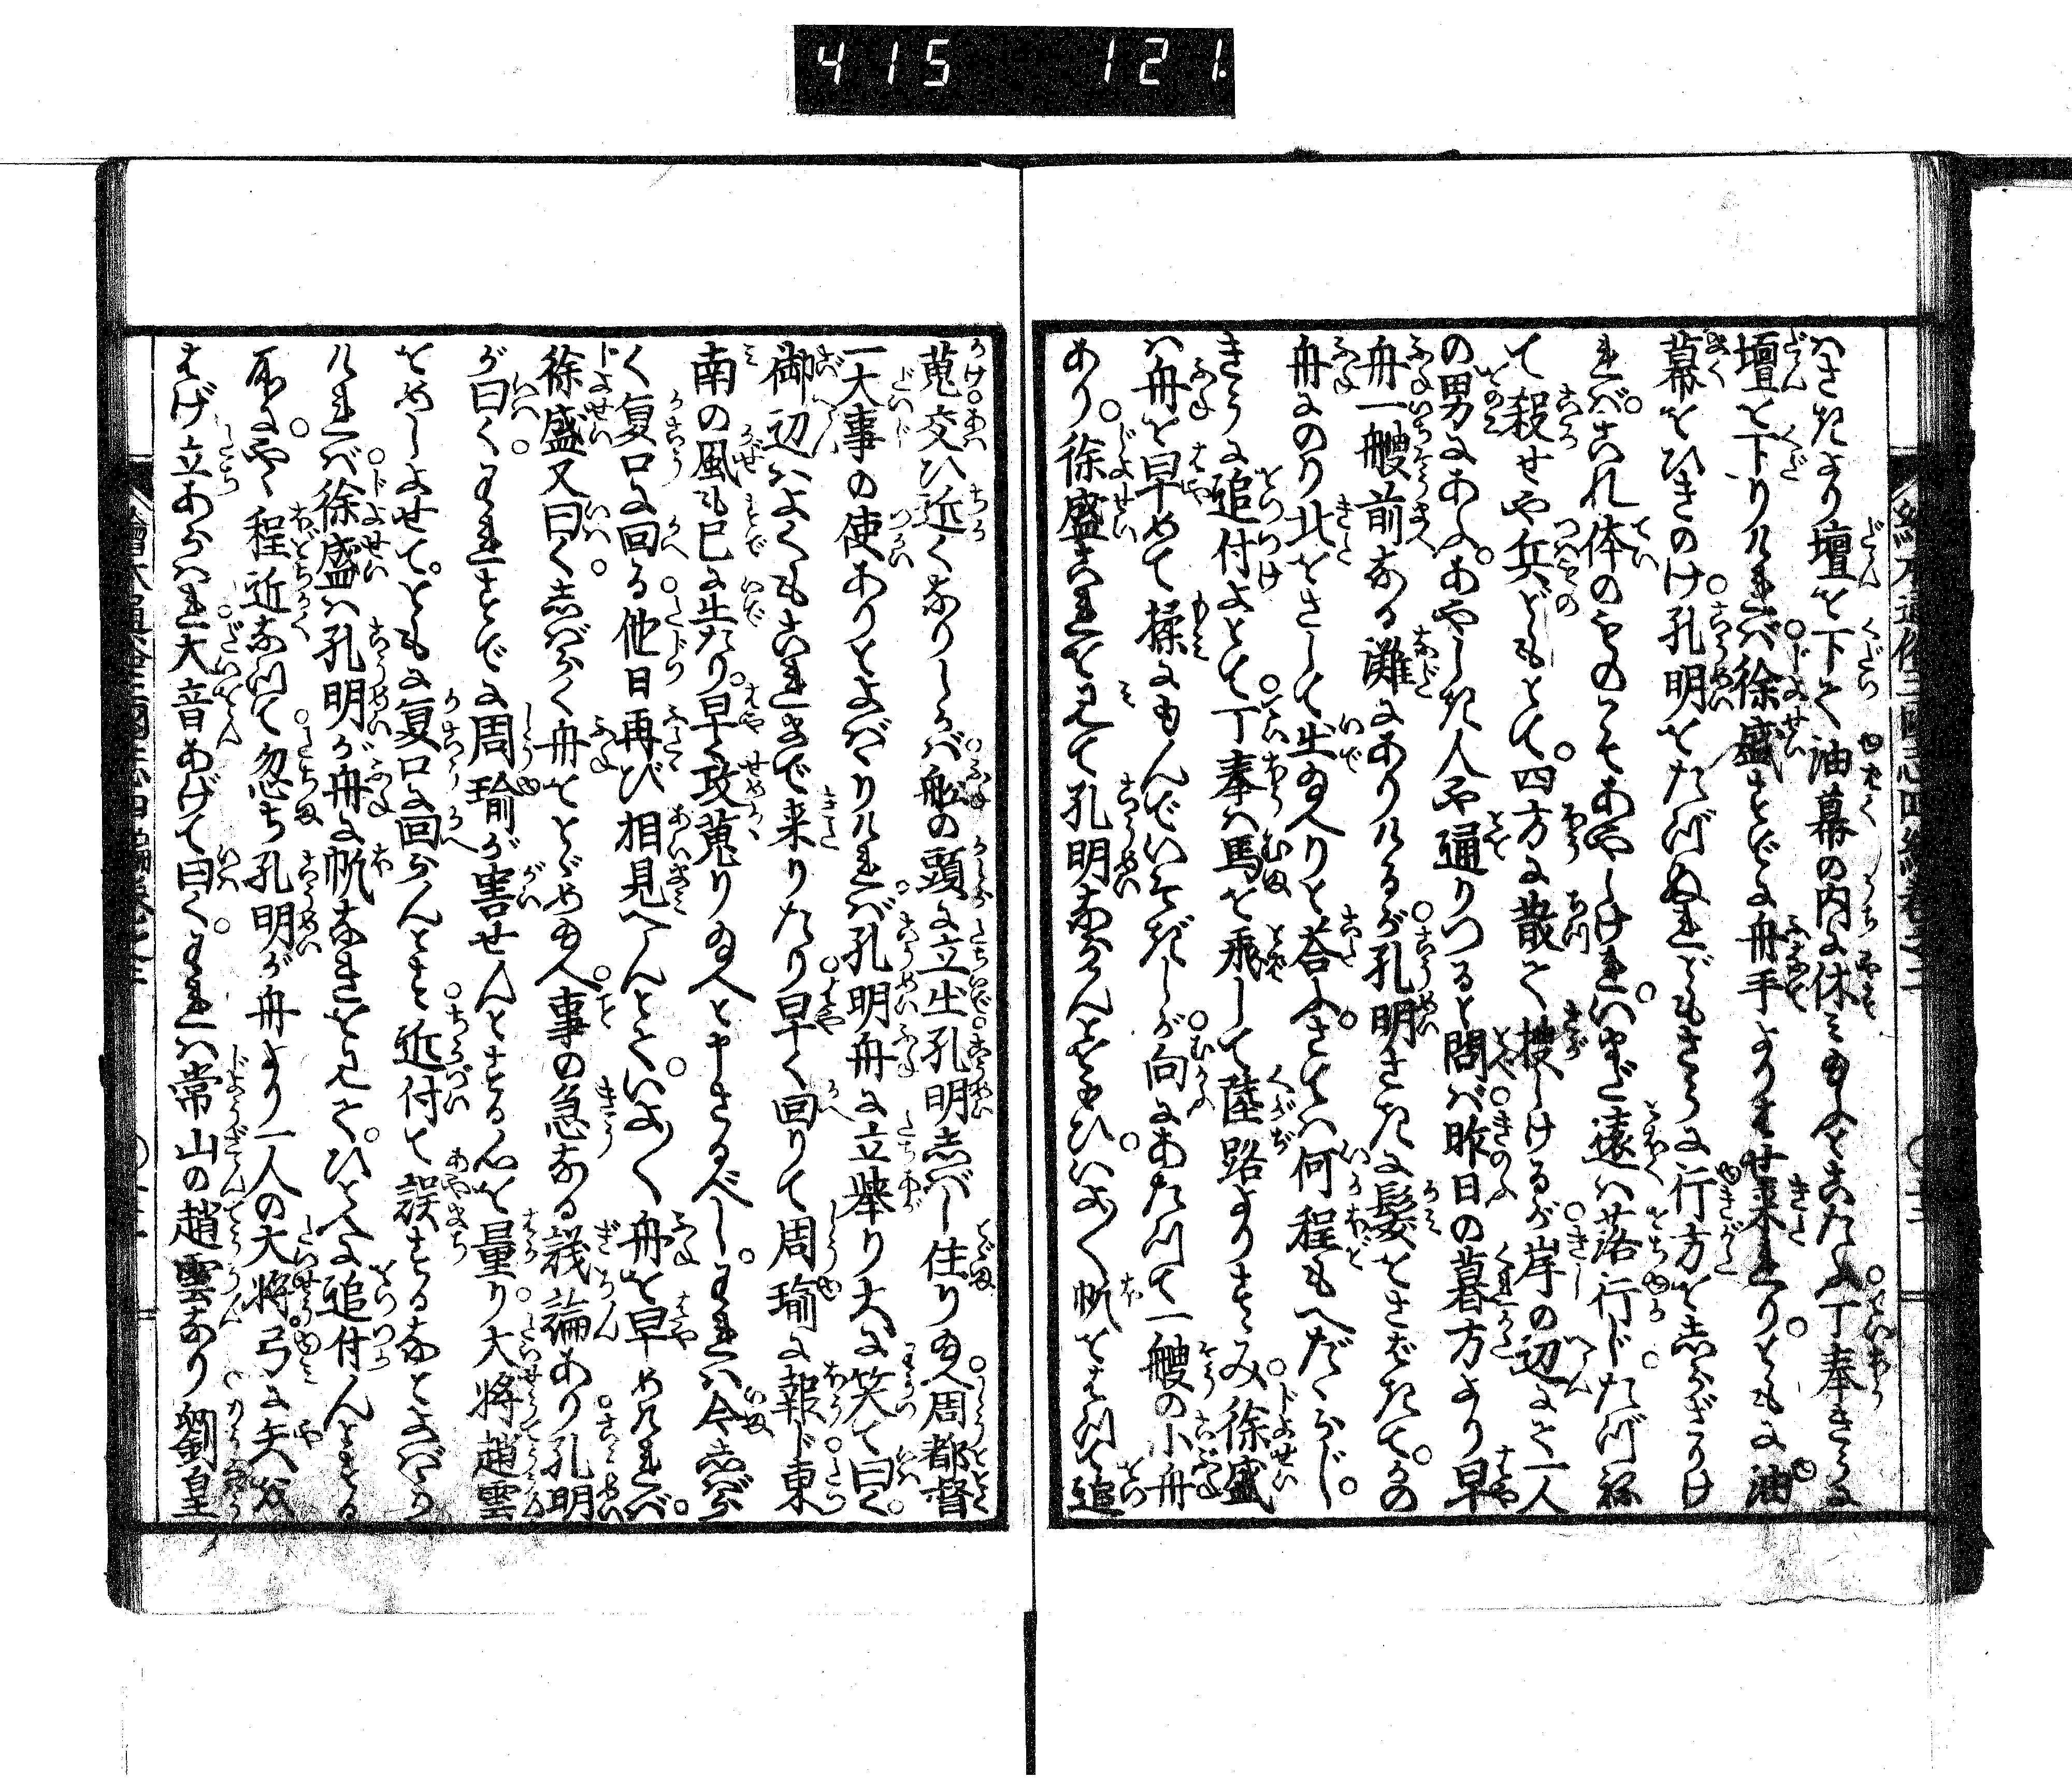 415 121.
はさきより壇を下て油幕の内に休み玉ふとこたふ丁奉きうに
壇を下りければ徐盛すでに舟手よりはせ来れりともに油
幕をひきのけ孔明をたづぬれどもさらに行方をしらざりけ
ればこれ体のものこそあやしけれいまだ遠くは落行じたづね
て殺せや兵どもとて四方に散て捜しけるが岸の辺にて一人
の男にあふあやしき人や通りつると問ば昨日の暮方より早
舟一艘前なる灘にありけるが孔明さきに髪をさばきてかの
舟にのり北をさして出玉へりと答ふさては何程もへだゝらじ
きうに追付よとて丁奉は馬を飛して陸路よりすゝみ徐盛
は舟を早めて揉にもんでいそぎしが向にあたつて一艘の小舟
あり徐盛これを見て孔明ならんとおもひいよ〱帆をはつて追
蒐交ひ近くなりしかば舩の頭に立出孔明しばし住り玉へ周都督
一大事の使ありとよばゝりければ孔明舟に立挙り大に笑て曰く
御辺はよくもこれまで来りたり早く回りて周瑜に報じ東
南の風も已に出たり早く攻蒐り玉へと申さるべしわれは今しばら
く夏口に回る他日再び相見へんとていよ〱舟を早めければ
徐盛又曰くしばらく舟をとゞめ玉へ事の急なる議論あり孔明
が曰くわれすでに周瑜が害せんとする心を量り大将趙雲
をめしよせてともに夏口に回らんとす近付て誤するなとよばゝり
ければ徐盛は孔明が舟に帆なきを見てひとへに追付んとする
所にやゝ程近なつて忽ち孔明が舟より一人の大将弓に矢を
はげ立あらはれ大音あげて曰くわれは常山の趙雲なり劉皇